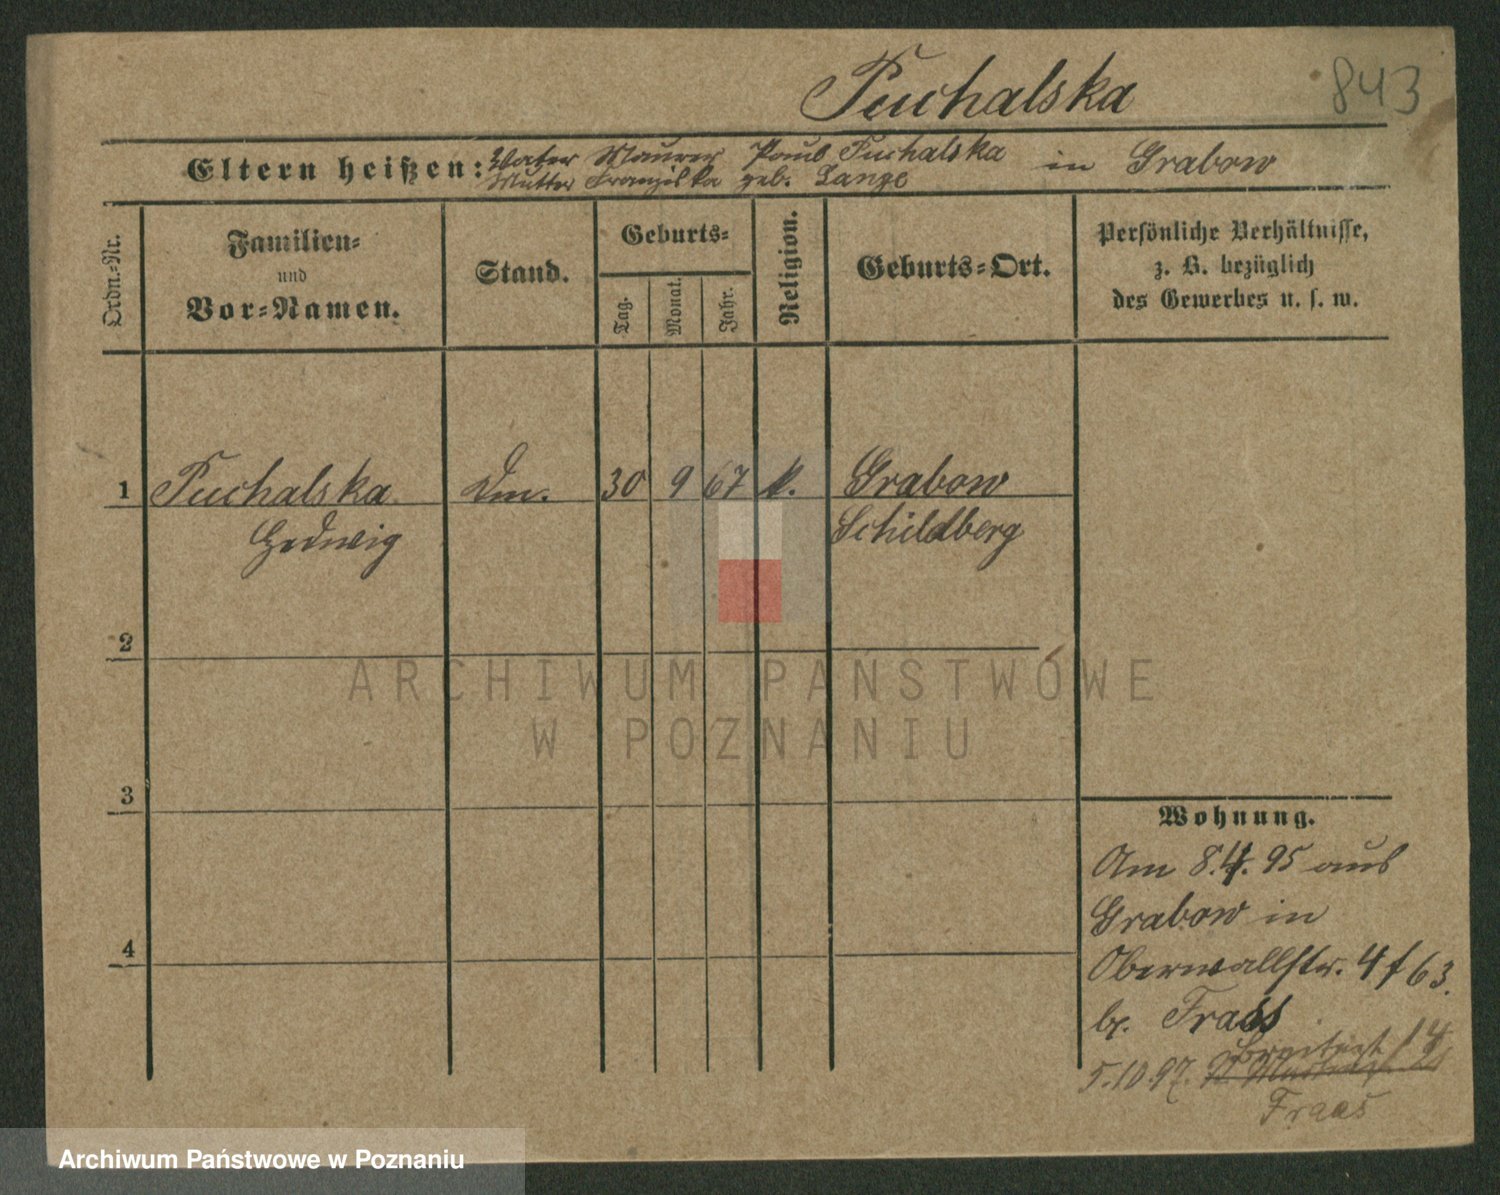 Puchalska 843
Eltern heißen: Vater Maurer Paul Puchalska in Grabow
Mutter Franziska geb. Lange
Ordn.=Nr.
Familien=
und
Vor=Namen.
Stand.
Geburts=
Tag.
Monat.
Jahr.
Religion.
Geburts=Ort.
Persönliche Verhältnisse,
z. B. bezüglich
des Gewerbes u. s. w.
1 Puchalska Dm. 30 9 67 k. Grabow
Hedwig Schildberg
2
ARCHIWUM PAŃSTWOWE
W POZNANIU
3
4
Wohnung.
Am 8.4.95 aus
Grabow in
Oberwallstr. 4 f 63.
b. Frass
Breitest 14
5.10.97.
Fraas
Archiwum Państwowe w Poznaniu